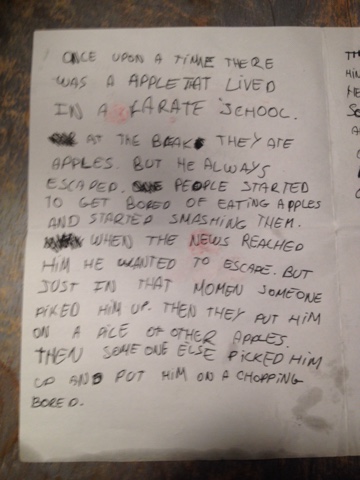 ONCE UPON A TIME THERE
WAS A APPLE TAT LIVED
IN A KARATE SCHOOL.
AT THE BEAK THEY ATE
APPLES. BUT HE ALWAYS
ESCAPED. PEOPLE STARTED
TO GET BORED OF EATING APPLES
AND STARTED SMASHING THEM.
WHEN THE NEWS REACHED
HIM HE WANTED TO ESCAPE. BUT
JUST IN THAT MOMEN SOMEONE
PIKED HIM UP. THEN THEY PUT HIM
ON A PILE OF OTHER APPLES.
THEN SOMEONE ELSE PICKED HIM
UP AND PUT HIM ON A CHOPPING
BORED.